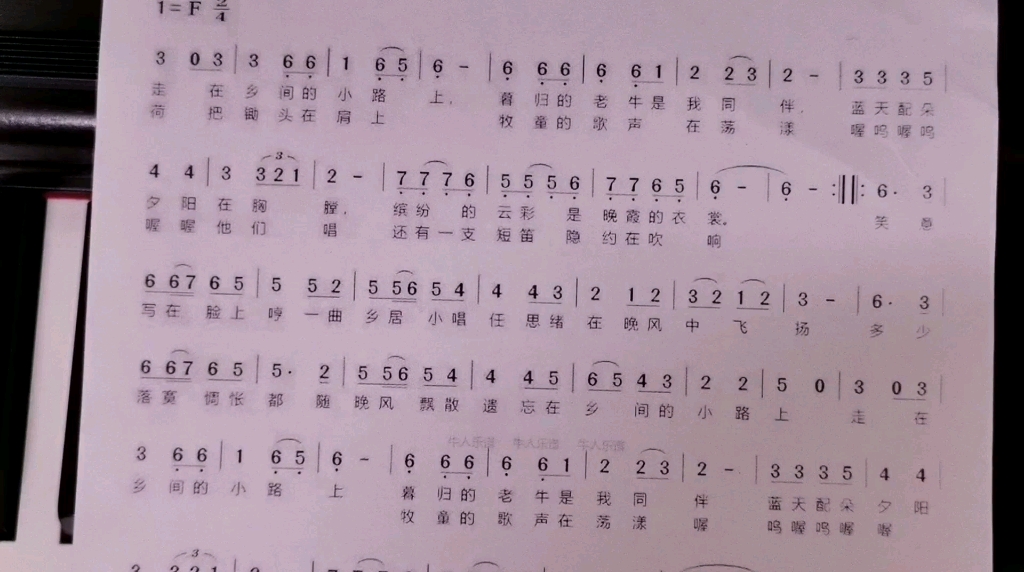 1=F 2/4
3 03 | 3 66 | 1 65 | 6 - | 6 66 | 6 61 | 2 23 | 2 - | 3 3 3 5
走 在乡 间的 小 路 上, 暮 归的 老 牛是 我 同 伴, 蓝天配朵
荷 把锄 头在 肩 上 牧 童的 歌 声 在 荡 漾 喔呜喔呜
4 4 | 3 321 | 2 - | 7 7 7 6 | 5 5 5 6 | 7 7 6 5 | 6 - | 6 - :‖: 6· 3
夕阳在胸 膛, 缤纷 的云彩 是晚霞的衣 裳。 笑 意
喔喔他们 唱 还有一支短笛 隐 约在吹 响
6 67 65 | 5 52 | 5 56 54 | 4 43 | 2 12 | 32 12 | 3 - | 6· 3
写在 脸上哼 一曲 乡居 小唱 任 思绪在晚风 中飞 扬 多 少
6 67 65 | 5· 2 | 5 56 54 | 4 45 | 65 43 | 2 2 | 5 0 | 3 03
落寞 惆怅 都 随晚风 飘散 遗 忘在 乡 间的 小路上 走 在
牛人乐谱 牛人乐谱 牛人乐谱
3 66 | 1 65 | 6 - | 6 66 | 6 61 | 2 23 | 2 - | 3 3 3 5 | 4 4
乡 间的 小 路 上 暮 归的 老 牛是 我 同 伴 蓝天配朵 夕阳
牧 童的 歌 声在 荡 漾 喔 呜喔呜喔 喔